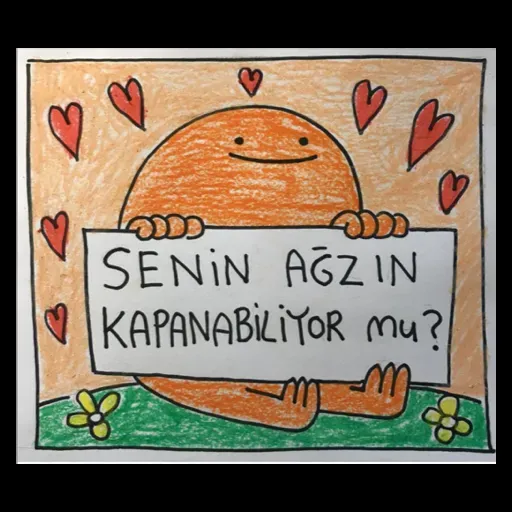 SENİN AĞZIN
KAPANABİLİYOR mu?